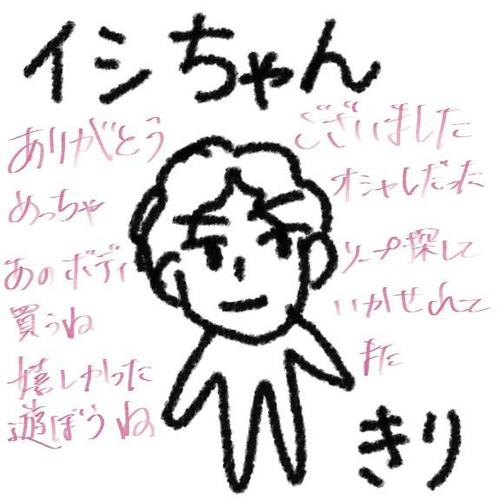 イシちゃん
ありがとう ございました
めっちゃ オシャレだった
あのボディ ソープ探して
買うね いかせれて
嬉しかった また
遊ぼうね
きり